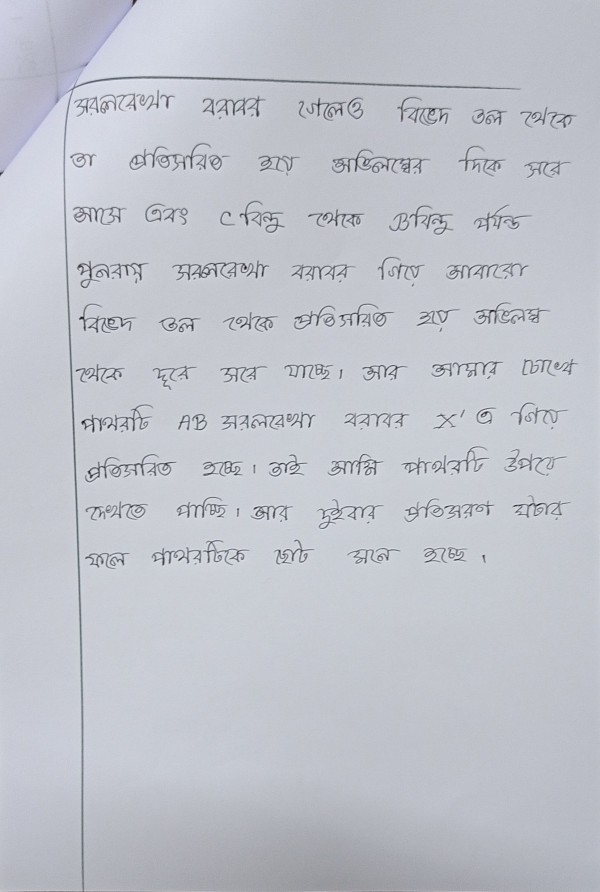 সরলরেখা বরাবর গেলেও বিভেদ তল থেকে
তা প্রতিসরিত হয়ে অভিলম্বের দিকে সরে
আসে এবং C বিন্দু থেকে B বিন্দু পর্যন্ত
পুনরায় সরলরেখা বরাবর গিয়ে আবারো
বিভেদ তল থেকে প্রতিসরিত হয়ে অভিলম্ব
থেকে দূরে সরে যাচ্ছে। আর আমার চোখে
পাথরটি AB সরলরেখা বরাবর X' এ গিয়ে
প্রতিসরিত হচ্ছে। তাই আমি পাথরটি উপরে
দেখতে পাচ্ছি। আর দুইবার প্রতিসরণ ঘটার
ফলে পাথরটিকে ছোট মনে হচ্ছে।